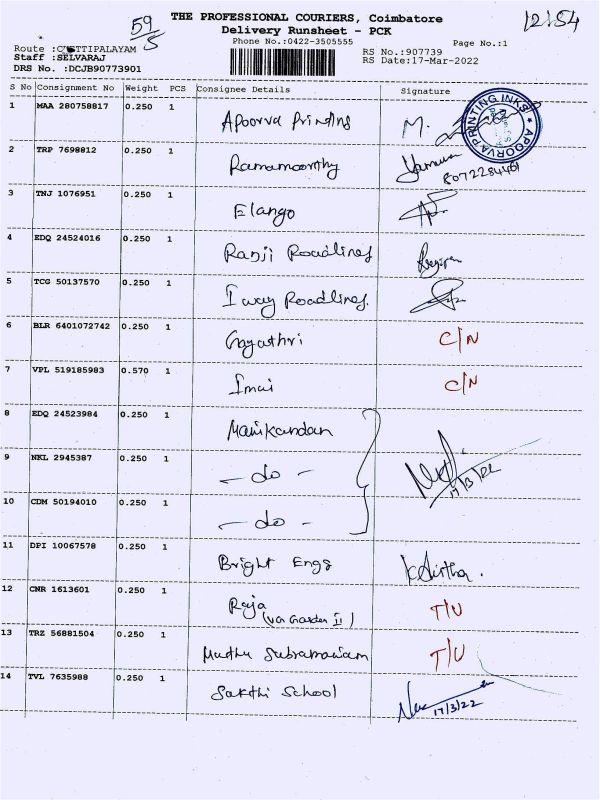 59/5
THE PROFESSIONAL COURIERS, Coimbatore
12.54
Delivery Runsheet - PCK
Phone No.:0422-3505555
Page No.:1
Route : TTIPALAYAM
RS No.:907739
Staff :SELVARAJ
RS Date:17-Mar-2022
DRS No. :DCJB90773901
S No Consignment No Weight PCS Consignee Details Signature
1 MAA 280758817 0.250 1 Apoorva Printins M.
APOORVA PRINTING INKS
2 TRP 7698812 0.250 1 Ramamoorthy
3 TNJ 1076951 0.250 1 Elango
4 EDQ 24524016 0.250 1 Ranji Roadlines
5 TCG 50137570 0.250 1 I way Roadlines.
6 BLR 6401072742 0.250 1 Gayathri C/N
7 VPL 519185983 0.570 1 Imai C/N
8 EDQ 24523984 0.250 1 Manikandan
9 NKL 2945387 0.250 1 - do - 17/3/22
10 CDM 50194010 0.250 1 - do -
11 DPI 10067578 0.250 1 Bright Engs
12 CNR 1613601 0.250 1 Raja T/U
(VG Garden II)
13 TRZ 56881504 0.250 1 Muthu Subramaniam T/U
14 TVL 7635988 0.250 1 Sakthi School 17/3/22